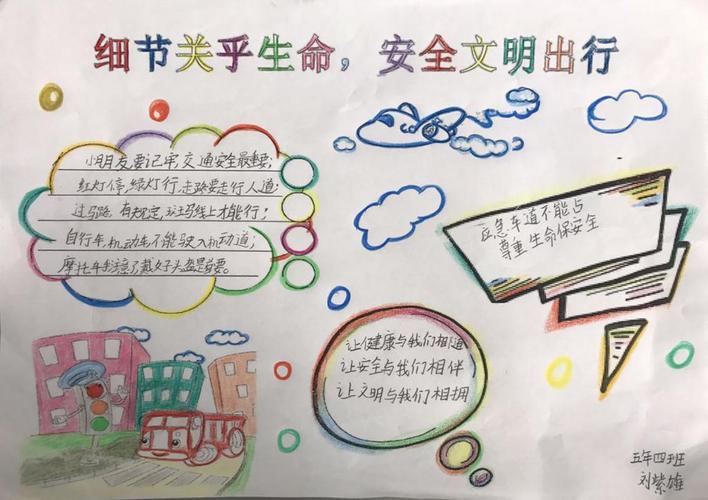 细节关乎生命，安全文明出行
小朋友要记牢，交通安全最重要；
红灯停，绿灯行，走路要走行人道；
过马路，有规定，斑马线上才能行；
自行车，机动车不能驶入机动道；
摩托车戴好头盔是首要。
应急车道不能占
尊重生命保安全
让健康与我们相随
让安全与我们相伴
让文明与我们相拥
五年四班
刘紫雄